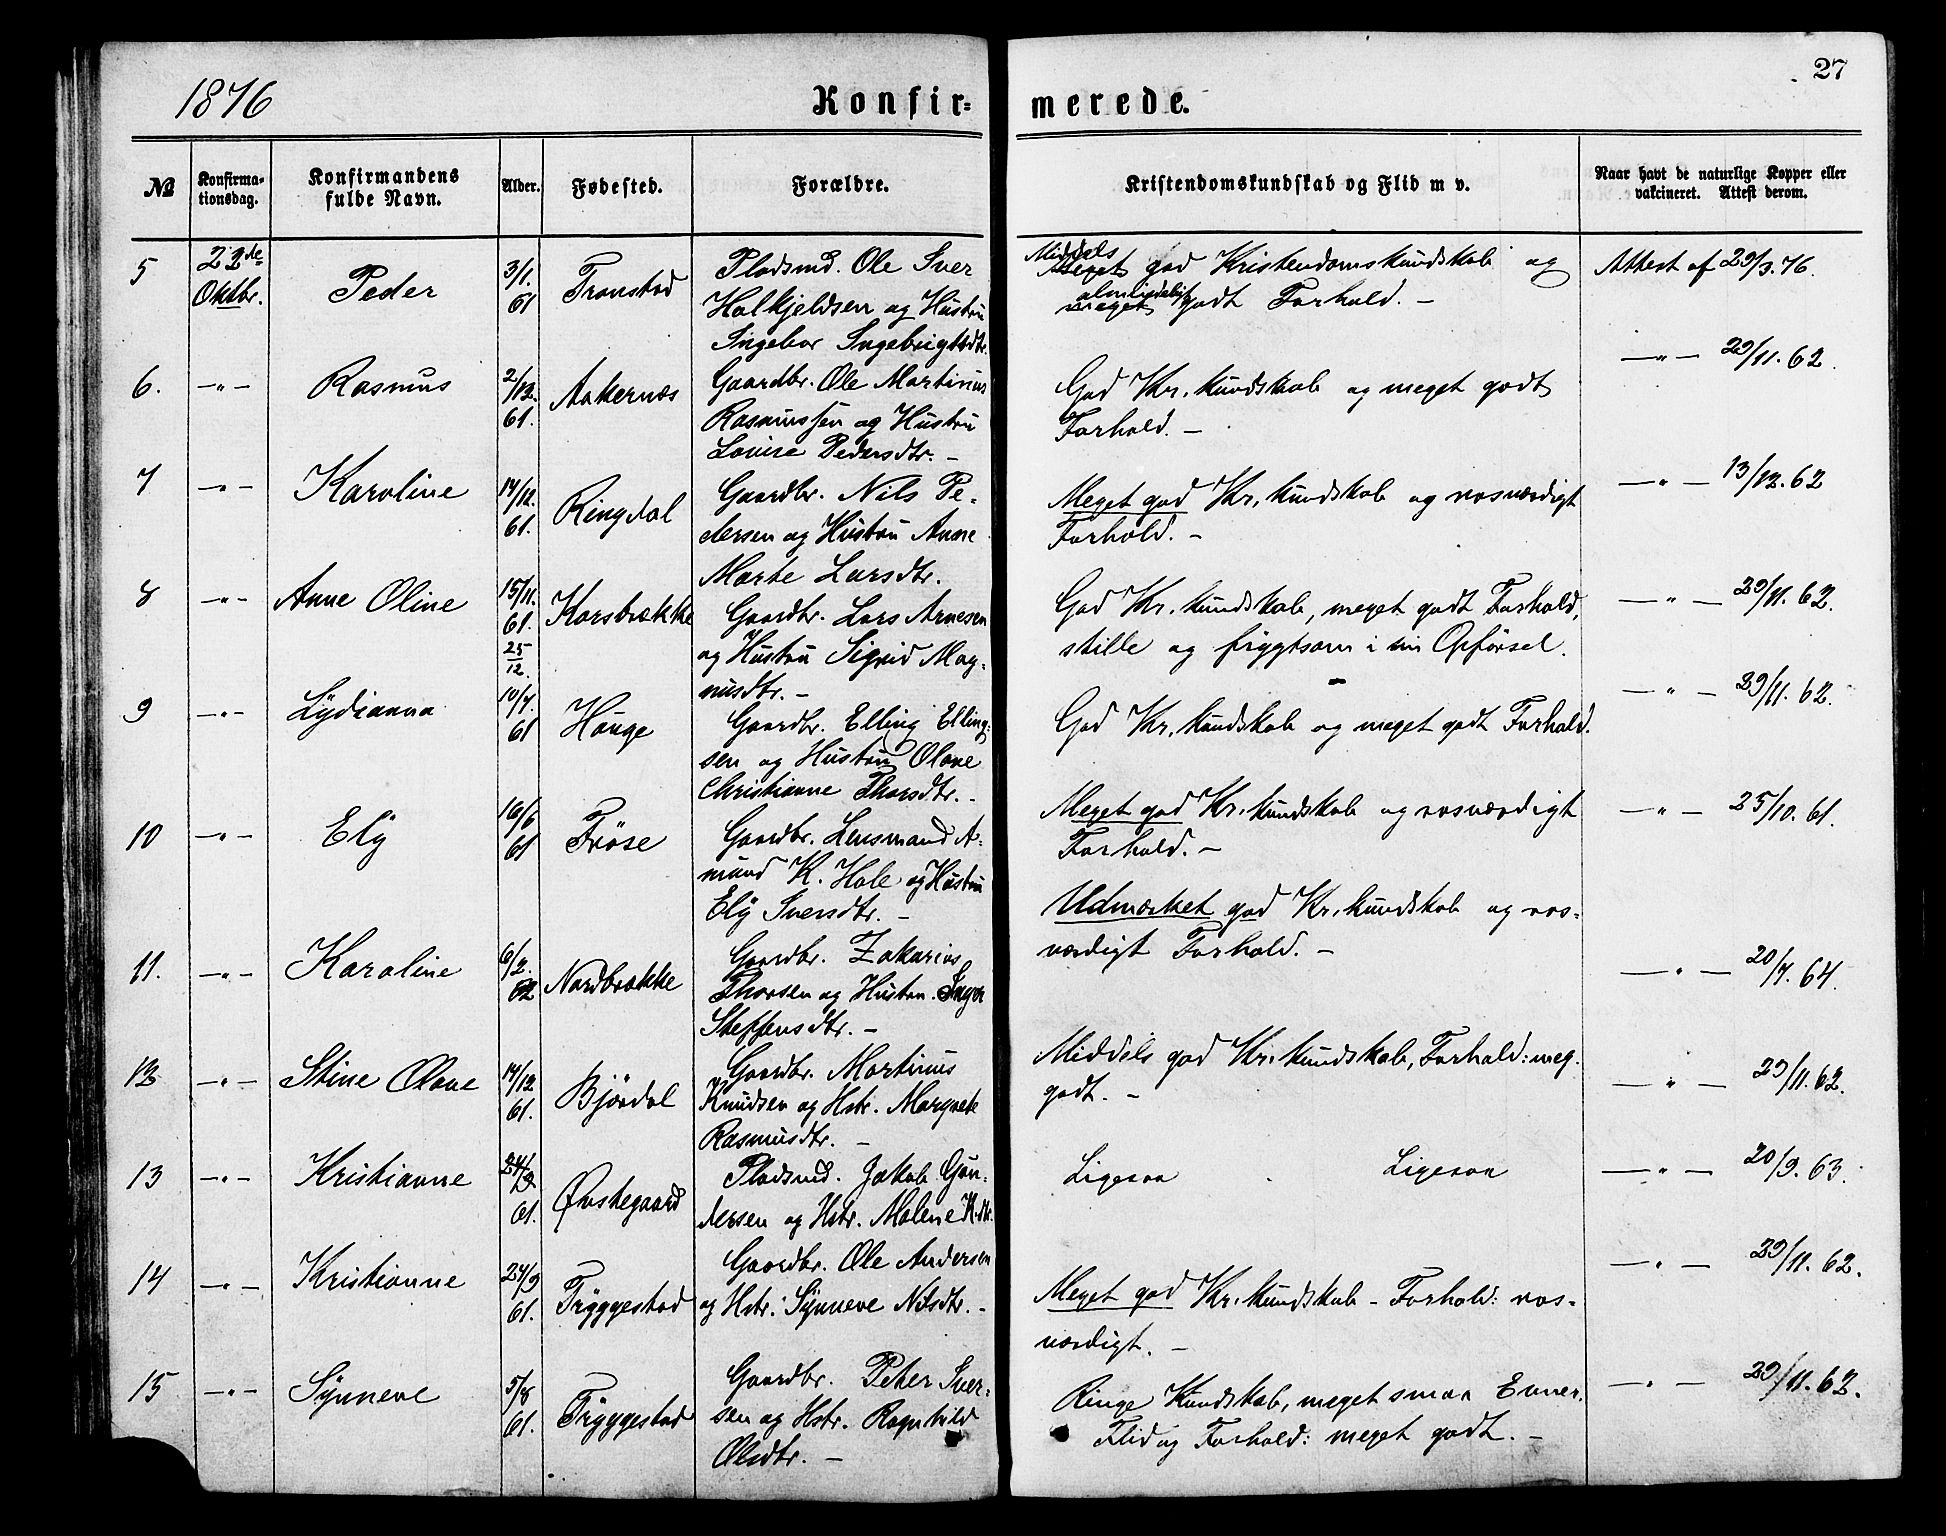 1876
Konfir=
merede.
27
No
Konfirma-
tionsdag.
Konfirmandens
fulde Navn.
Alder.
Fødested.
Forældre.
Kristendomskundskab og Flid m v.
Naar havt de naturlige Kopper eller
vakcineret. Attest derom.
5
22de
Oktbr.
Peder
3/1.
61
Tronstad
Pladsmd. Ole Sver
Halkjeldsen og Hustru
Ingebor Ingebrigtsdtr.
Middels
Meget god Kristendomskundskab og
almindeligt
meget godt Forhold. —
Attest af 29/3.76.
6.
—"—
Rasmus
2/12.
61.
Aakernæs
Gaardbr. Ole Martinus
Rasmussen og Hustru
Lovise Pedersdtr. —
God Kr.kundskab og meget godt
Forhold. —
—"— 29/11.62.
7
—"—
Karoline
17/12.
61.
Ringdal
Gaardbr. Nils Pe-
dersen og Hustru Anne
Marte Larsdtr.
Meget god Kr.kundskab og rosværdigt
Forhold. —
—"— 13/12.62
8
—"—
Anne Oline
15/11.
61.
25
12.
Korsbrække
Gaardbr. Lars Arnesen
og Hustru Sigrid Mag-
nusdtr. —
God Kr.kundskab, meget godt Forhold,
stille og frygtsom i sin Opførsel.
—"— 29/11.62.
9
—"—
Lydianna
10/7.
61
Hauge
Gaardbr. Elling Elling-
sen og Hustru Olave
Christianne Thorsdtr. —
God Kr.kundskab og meget godt Forhold.
—"— 29/11.62.
10
—"—
Ely
16/6
61
Frøse
Gaardbr. Lensmand A-
mund K. Hole og Hustru
Ely Sversdtr. —
Meget god Kr.kundskab og rosværdigt
Forhold. —
—"— 25/10.61.
11.
—"—
Karoline
6/2.
62
Nordbrække
Gaardbr. Zakarias
Thorsen og Hustru. Inger
Steffensdtr. —
Udmærket god Kr.kundskab og ros-
værdigt Forhold. —
—"— 20/7.64.
12
—"—
Stine Olave
17/12
61.
Bjørdal
Gaardbr. Martinus
Knudsen og Hstr. Margrete
Rasmusdtr. —
Middels god Kr.kundskab, Forhold: meg.
godt. —
—"— 29/11.62.
13
—"—
Kristianne
61.
Øvstegaard
Pladsmd. Jakob Gun-
dersen og Hstr. Malene K.dtr.
Ligesaa Ligesaa
—"— 20/9.63.
14
—"—
Kristianne
24/9
61.
Tryggestad
Gaardbr. Ole Andersen
og Hstr. Synneve Nilsdtr. —
Meget god Kr.kundskab - Forhold: ros-
værdigt. —
—"— 29/11.62.
15
—"—
Synneve
5/8
61.
Tryggestad
Gaardbr. Peter Sver-
sen og Hstr. Ragnhild
Olsdtr. —
Ringe Kundskab, meget smaa Evner.
Flid og Forhold: meget godt. —
—"— 29/11.62.